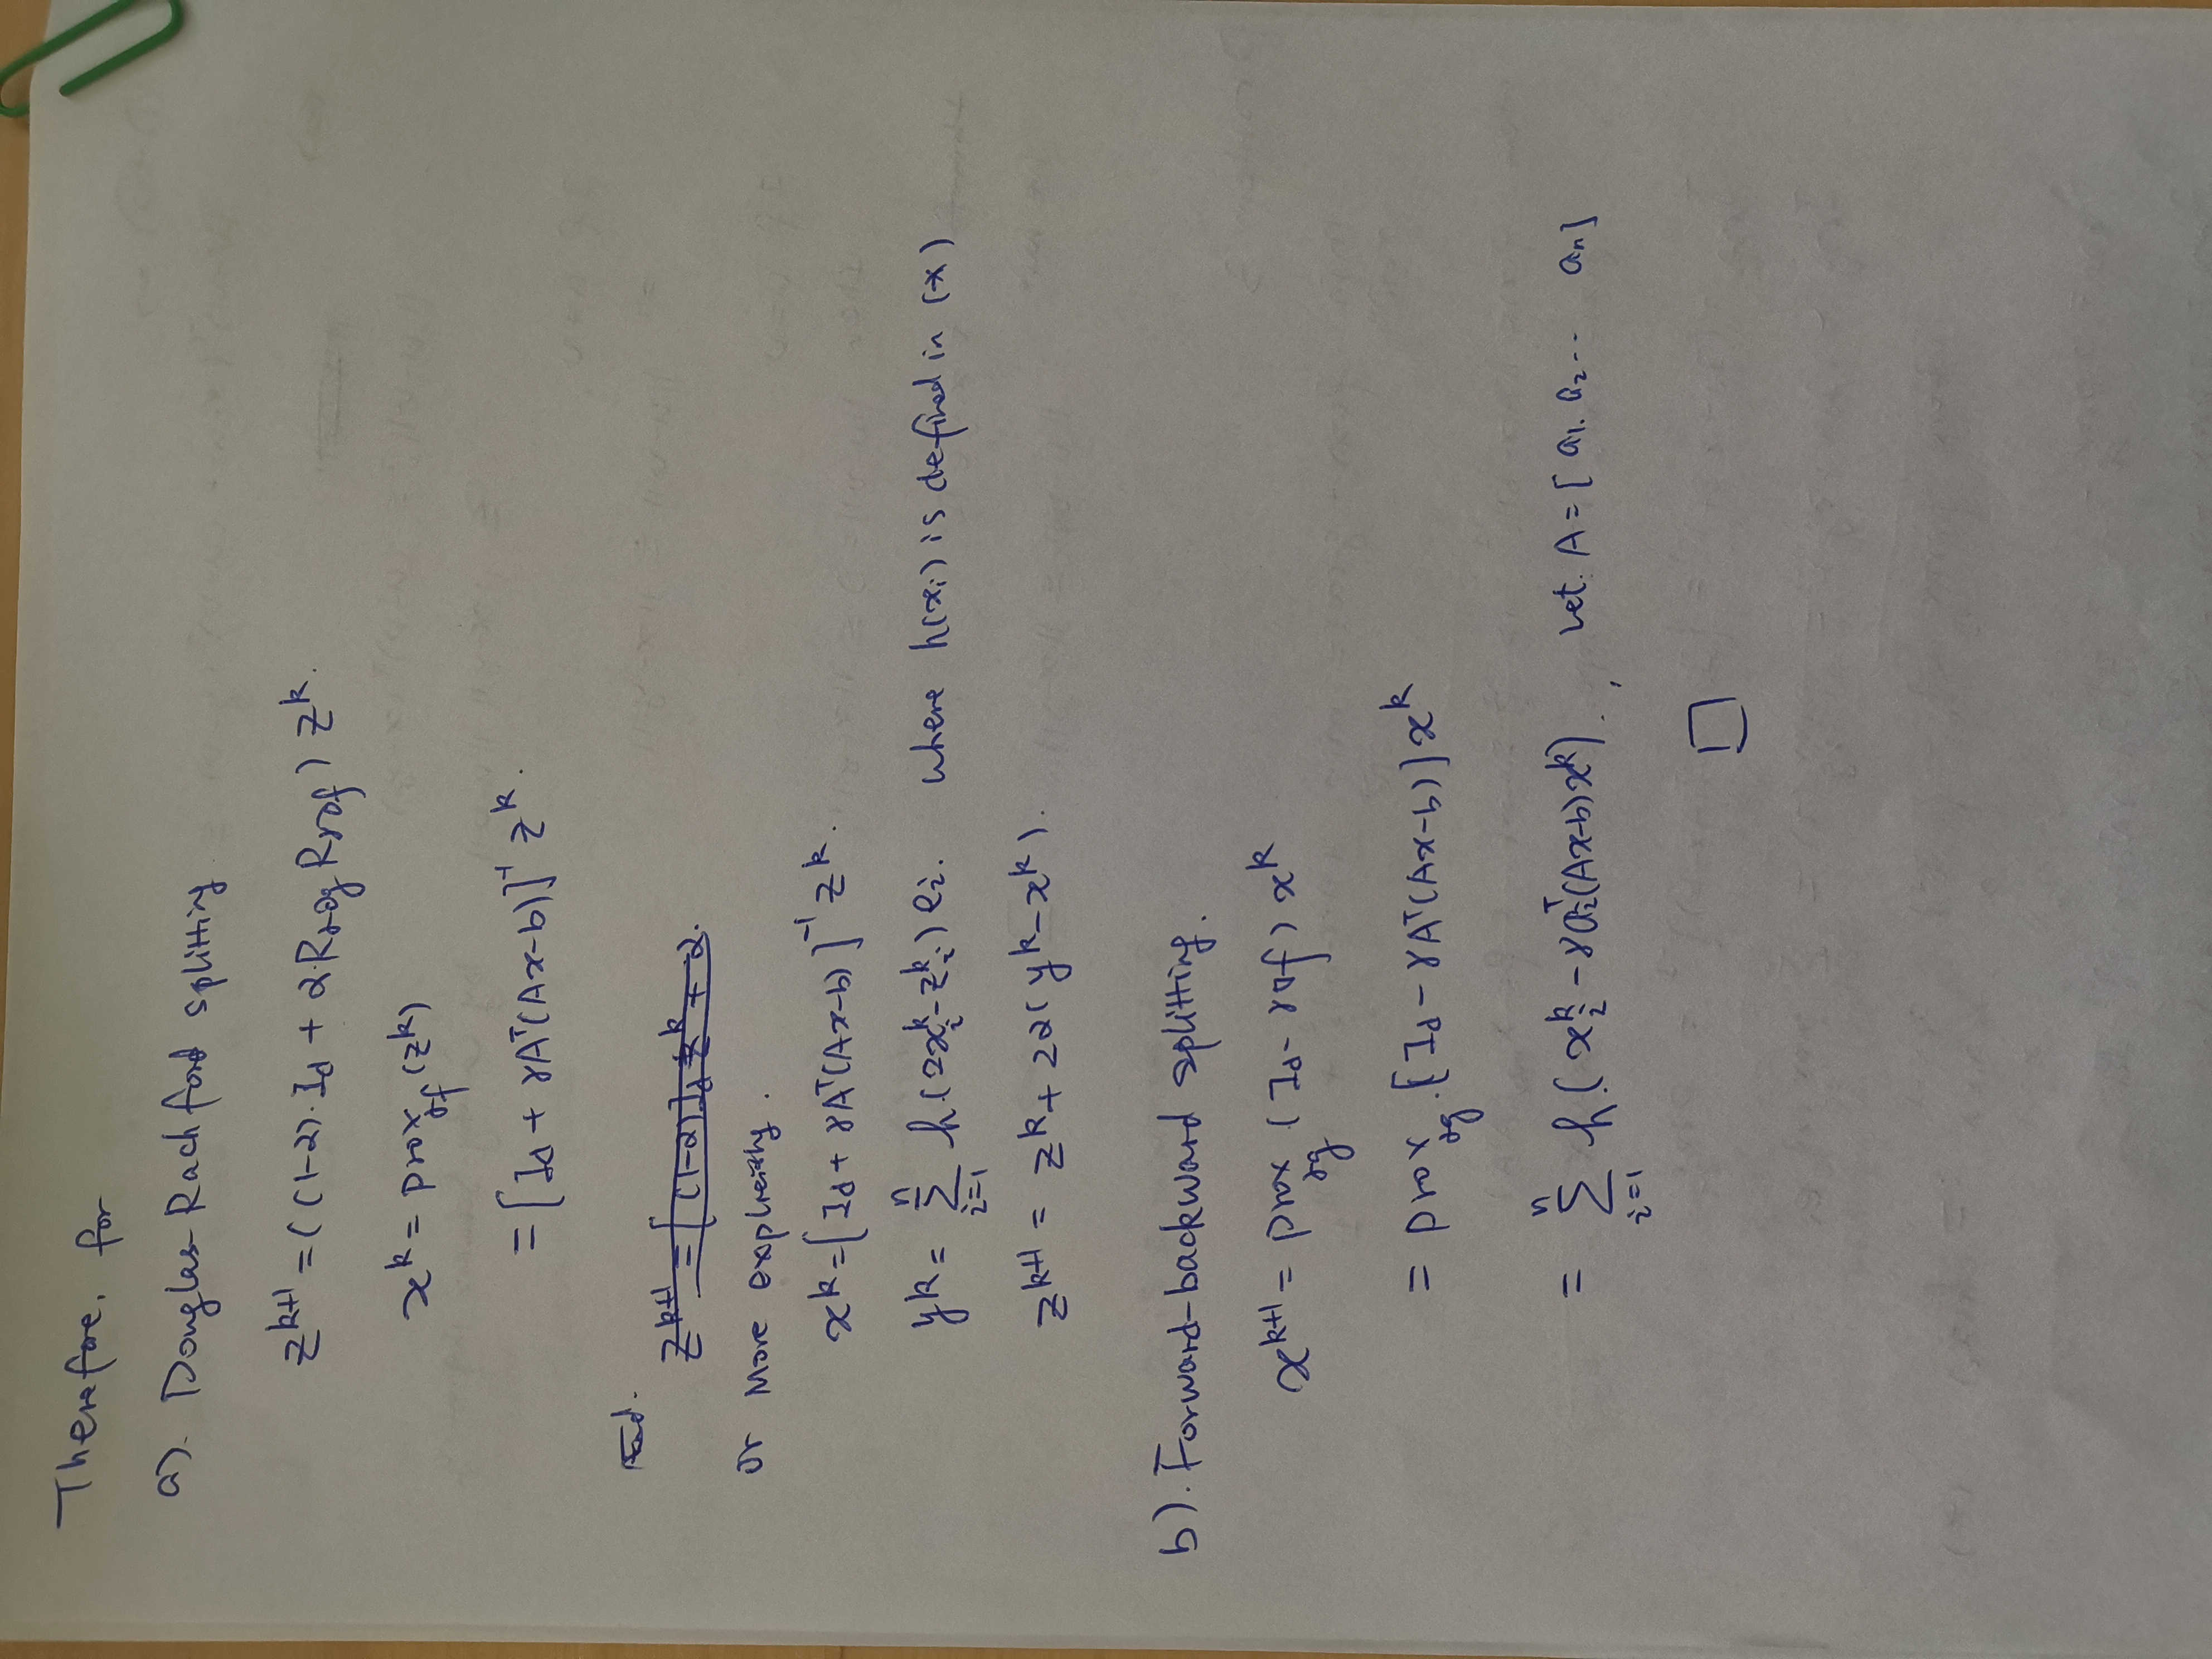 Therefore, for
a). Douglas-Rachford splitting
z^{k+1} = ((1-α)·Id + α·R_{γ∂g} R_{γ∂f}) z^k.
x^k = prox_{γf}(z^k)
= [Id + γA^T(Ax-b)]^{-1} z^k.
And.
z^{k+1} = [(1-α)Id z^k + α.
or more explicitly.
x^k = [Id + γA^T(Ax-b)]^{-1} z^k.
y^k = \sum_{i=1}^{n} h(2x_i^k - z_i^k) e_i. where h(x_i) is defined in (*)
z^{k+1} = z^k + 2α(y^k - x^k).
b). Forward-backward splitting.
x^{k+1} = prox_{γg} (Id - γ∇f) x^k
= prox_{γg}. [Id - γA^T(Ax-b)] x^k
= \sum_{i=1}^{n} h(x_i^k - γa_i^T(Ax-b)x^k). , let. A = [a_1. a_2... a_n]
□